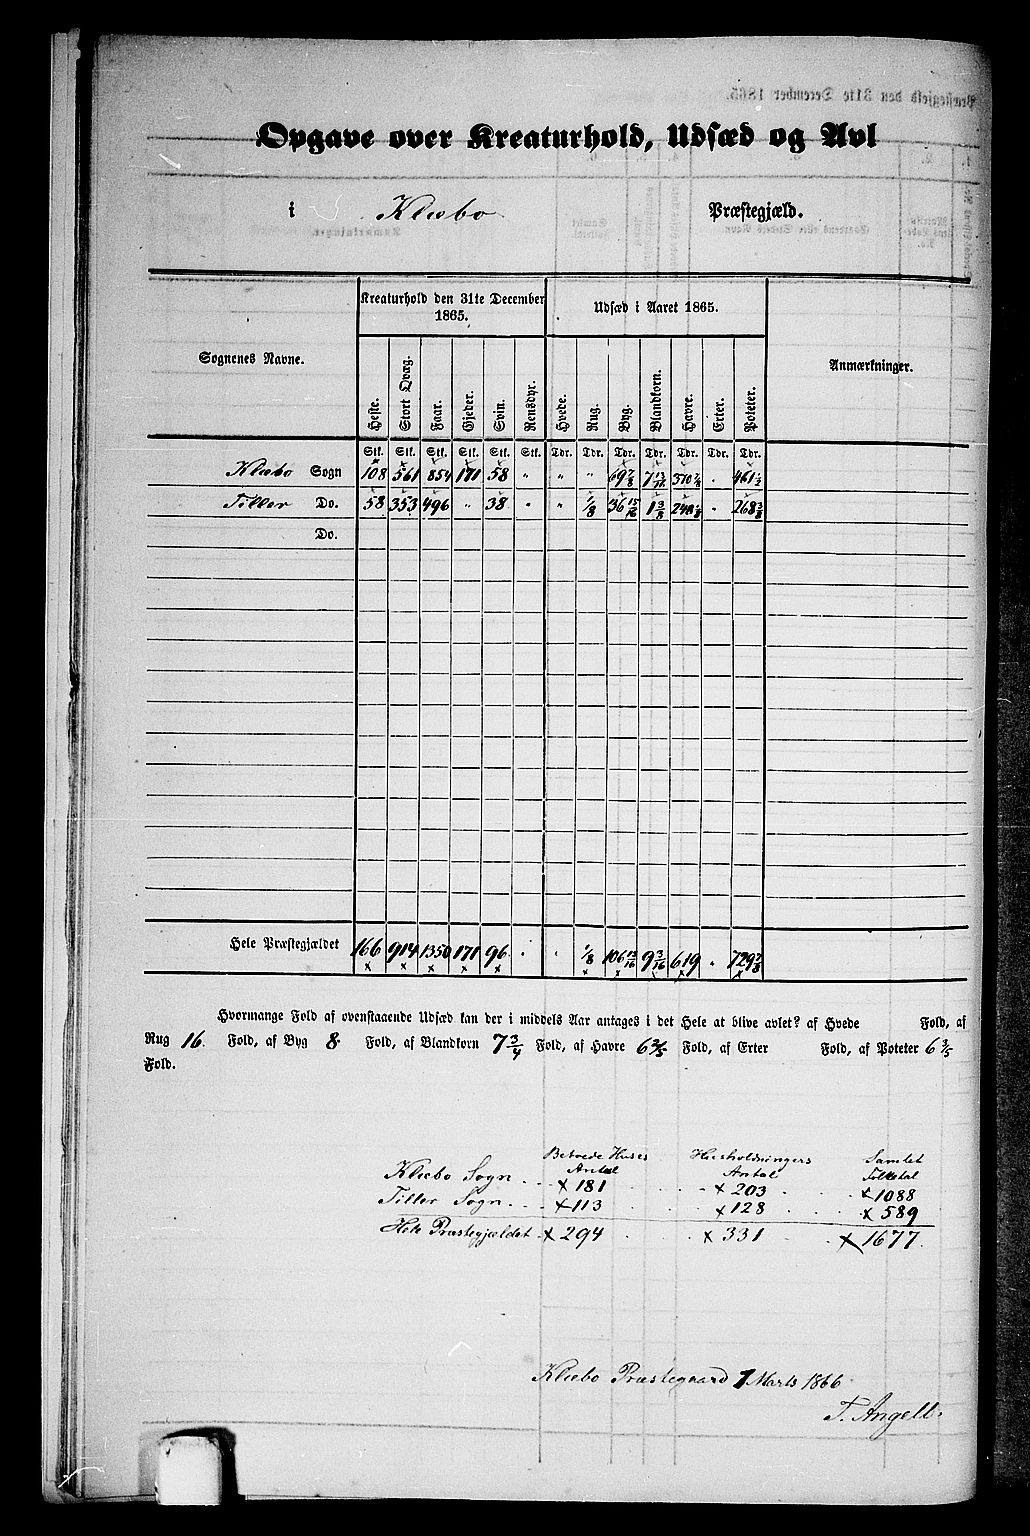 Opgave over Kreaturhold, Udsæd og Avl
i Klæbo Præstegjæld.
Sognenes Navne. Kreaturhold den 31te December 1865. Udsæd i Aaret 1865. Anmærkninger.
Heste. Stort Qvæg. Faar. Gjeder. Svin. Rensdyr. Hvede. Rug. Byg. Blandkorn. Havre. Erter. Poteter.
Stk. Stk. Stk. Stk. Stk. Stk. Tdr. Tdr. Tdr. Tdr. Tdr. Tdr. Tdr.
Klæbo Sogn 108 561 854 171 58 " " " 69 7/8 7 13/16 370 7/8 " 461 1/2
Tiller Do. 58 353 496 " 38 " " 1/8 36 15/16 1 3/8 248 1/8 " 268 3/8
Do.
Hele Præstegjældet 166 914 1350 171 96 " " 1/8 106 13/16 9 3/16 619 " 729 7/8
Hvormange Fold af ovenstaaende Udsæd kan der i middels Aar antages i det Hele at blive avlet? af Hvede Fold, af
Rug 16. Fold, af Byg 8. Fold, af Blandkorn 7 3/4 Fold, af Havre 6 2/5 Fold, af Erter Fold, af Poteter 6 3/5
Fold.
Beboede Huses Antal Husholdningers Antal Samlet Folketal
Klæbo Sogn . . . x 181 . . . x 203 . . x 1088
Tiller Sogn . . . x 113 x 128 . . x 589
Hele Præstegjældet x 294 . . . x 331 . . x 1677.
Klæbo Præstegaard 7 Marts 1866
T. Angell.